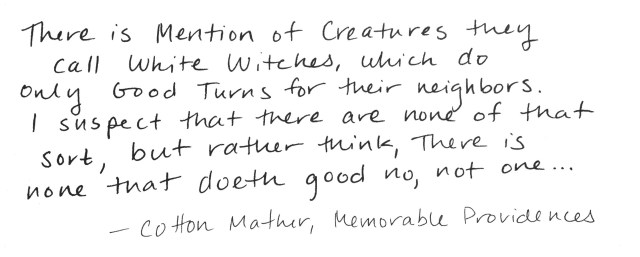 There is Mention of Creatures they
call White Witches, which do
only Good Turns for their neighbors.
I suspect that there are none of that
sort, but rather think, There is
none that doeth good no, not one...
— Cotton Mather, Memorable Providences